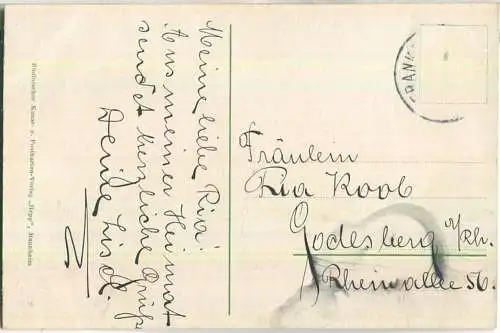 Meine liebe Ria!
Aus meiner Heimat
sendet herzliche Grüße
Deine Lisel.
Badischer Kunst- u. Postkarten-Verlag „Hepp", Mannheim
FRANK
Fräulein
Ria Koob
Godesberg a/Rh.
Rheinallee 56.